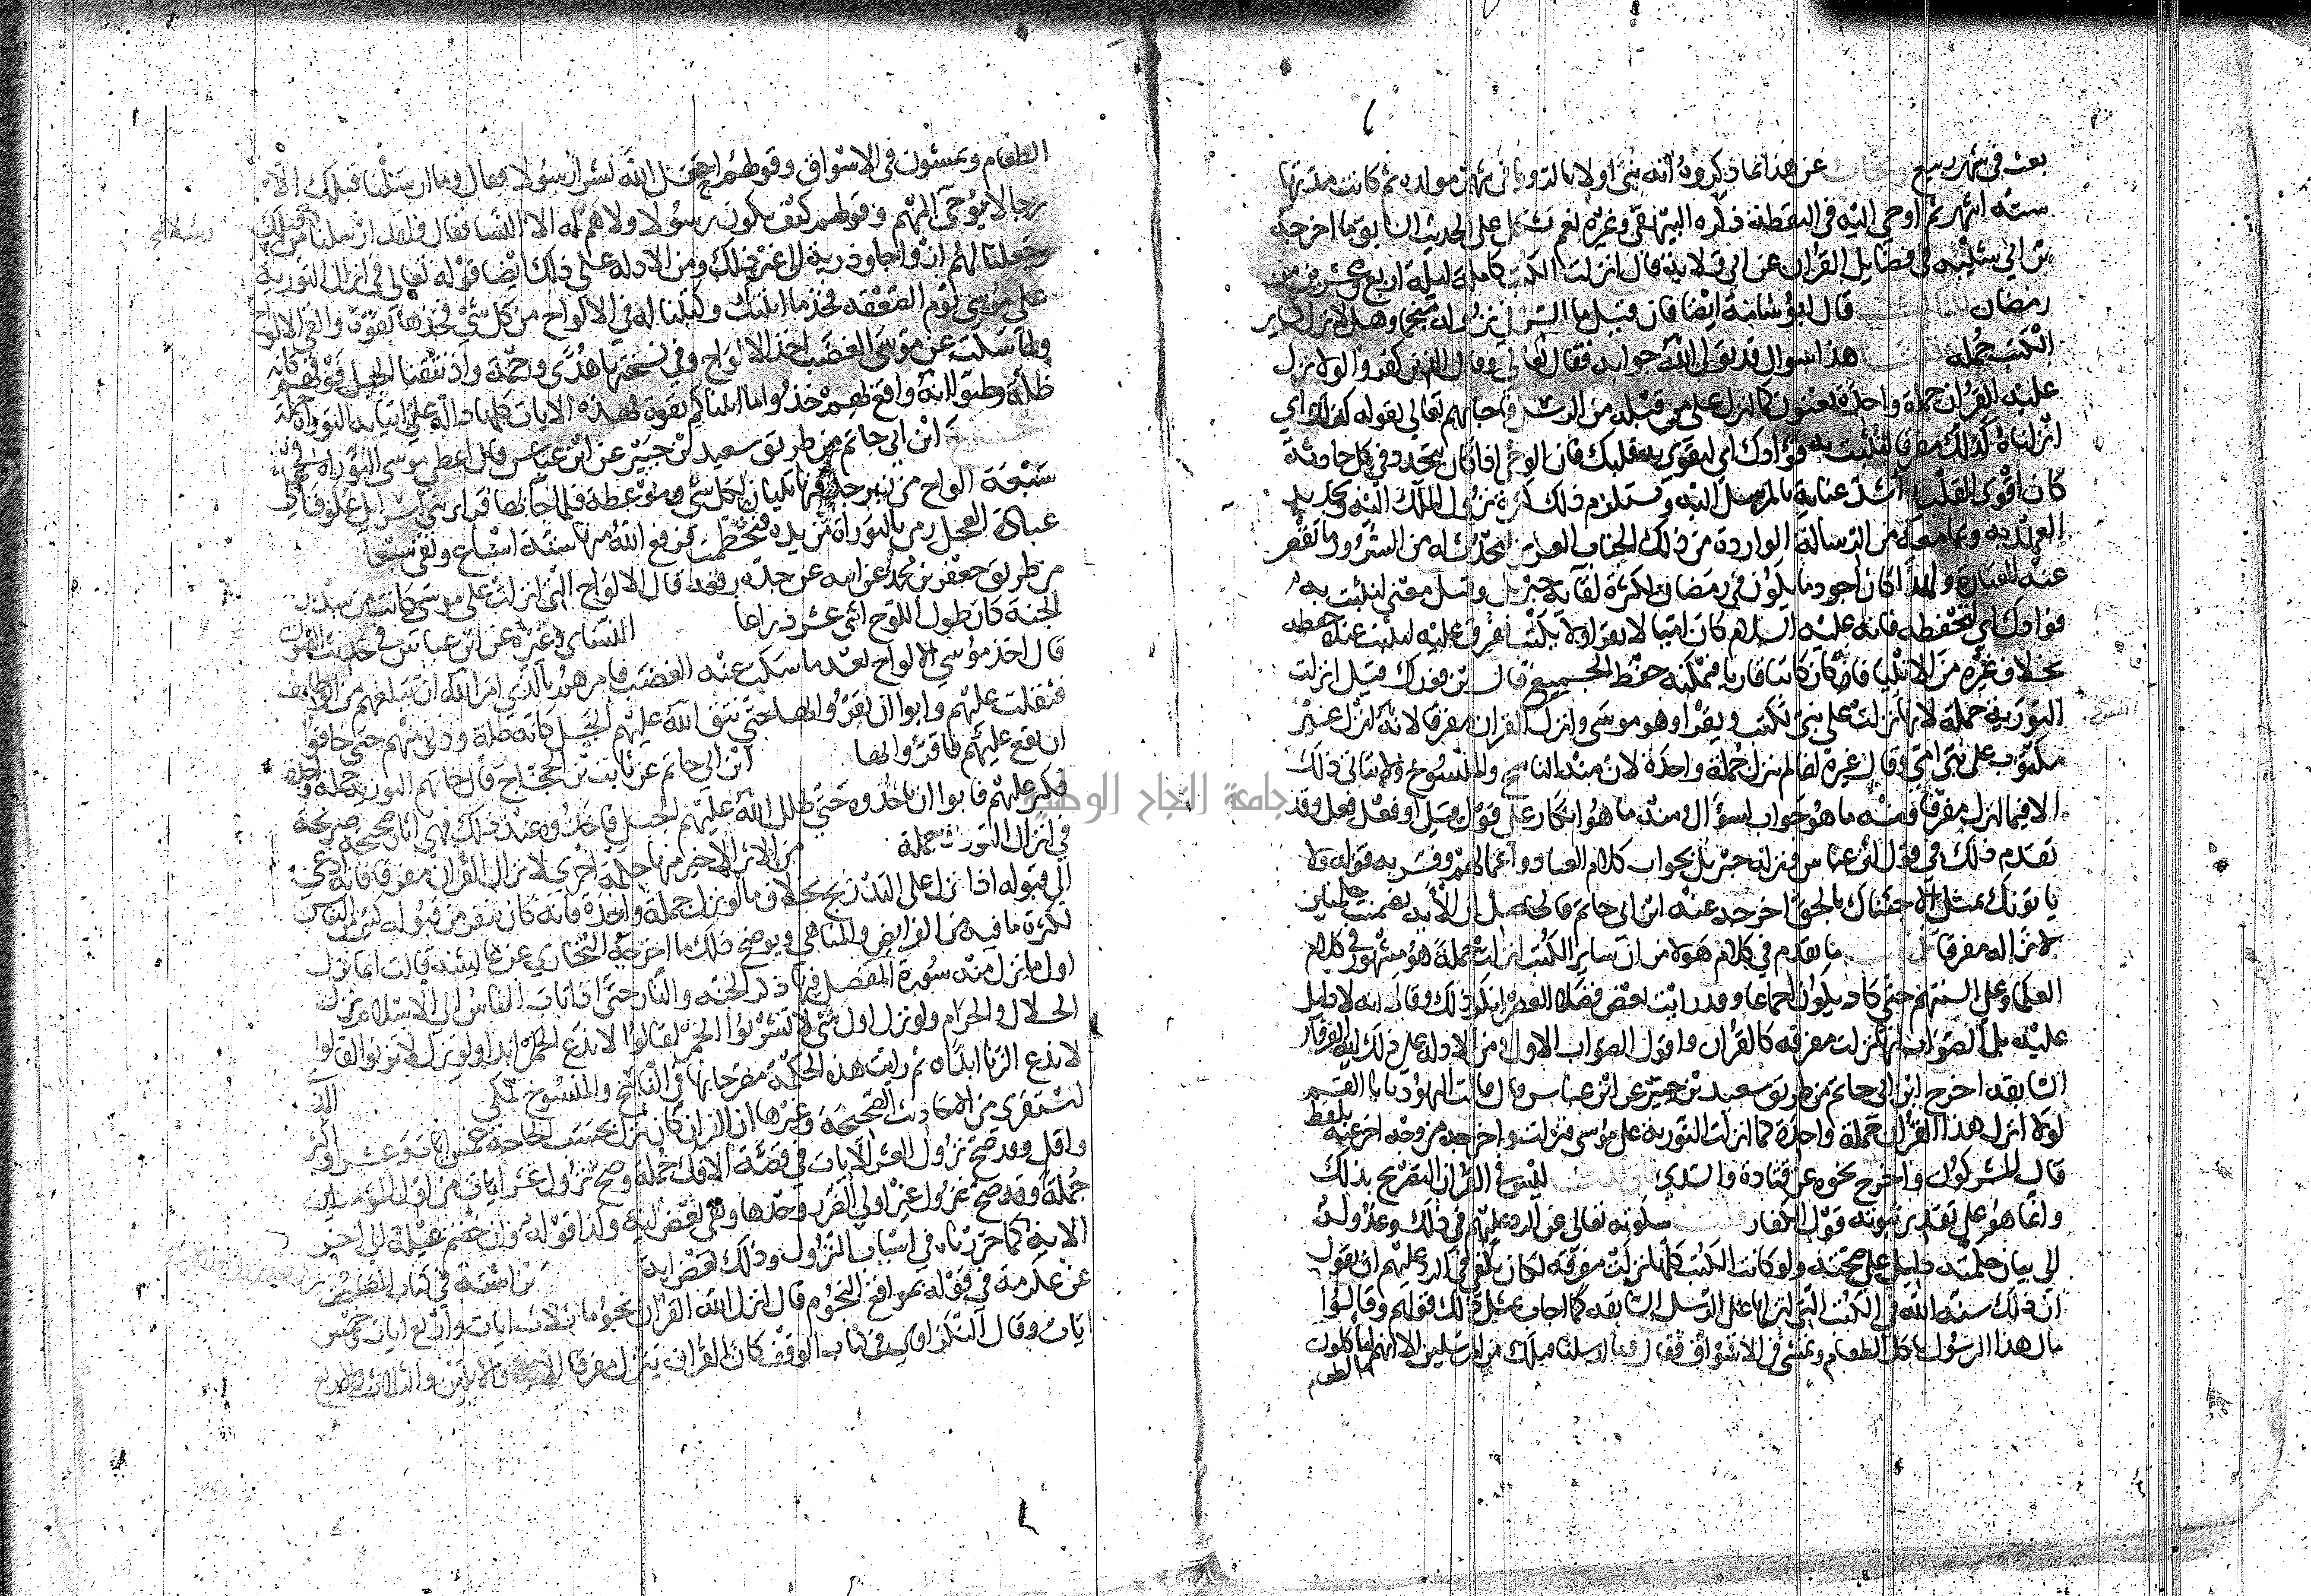 بعث في شهر ربيع عن هذا بما ذكروه انه نبئ اولا بالرويا في شهر مولده ثم كانت مدتها
ستة اشهر ثم اوحي اليه في اليقظة ذكره البيهقي وغيره نعم يشكل على الحديث السابق ما اخرجه
بن ابي شيبه في فضايل القران عن ابي قلابة قال انزلت الكتب كاملة ليلة اربع وعشرين من
رمضان قال ابو شامة ايضا فان قيل ما السر في نزوله منجما وهلا نزل كساير
الكتب جمله هذا سوال قد تولى الله جوابه فقال تعالى وقال الذين كفروا لولا نزل
عليه القران جملة واحدة يعنون كما نزل على من قبله من الرسل فاجابهم تعالى بقوله كذلك اي
انزلناه كذلك مفرقا لنثبت به فؤادك اي لنقوي به قلبك فان الوحي اذا كان يتجدد في كل حادثة
كان اقوى للقلب اشد عناية بالمرسل اليه ويستلزم ذلك كثرة نزول الملك اليه وتجديد
العهد به وبما معه من الرسالة الواردة من ذلك الجناب العزيز فيحدث له من السرور ما تقصر
عنه العبارة ولهذا كان اجود ما يكون في رمضان لكثرة لقايه جبريل وقيل معنى لنثبت به
فوادك اي لتحفظه فانه عليه السلام كان اميا لا يقرا ولا يكتب ففرق عليه ليثبت عنده حفظه
بخلاف غيره من الانبيا فانه كان كاتبا قاريا فيمكنه حفظ الجميع قال بن فورك قيل انزلت
التورية جملة لانها نزلت على نبي يكتب ويقرا وهو موسى وانزل القران مفرقا لانه انزل غير
مكتوب على نبي امي وقال غيره انما لم ينزل جملة واحدة لان منه الناسخ والمنسوخ ولا يتاتى ذلك
الا فيما انزل مفرقا ومنه ما هو جواب لسؤال ومنه ما هو انكار على قول قيل او فعل فعل وقد
تقدم ذلك في قول ابن عباس ونزله جبريل بجواب كلام العباد واعمالهم وفسر به قوله ولا
ياتونك بمثل الا جئناك بالحق اخرجه عنه ابن ابي حاتم فالحاصل ان الاية تضمنت حكمتين
لانزاله مفرقا ما تقدم في كلام هولا من ان ساير الكتب انزلت جملة هو مشهور في كلام
العلما وعلى السنتهم حتى كاد يكون اجماعا وقد رايت بعض فضلا العصر انكر ذلك وقال انه لا دليل
عليه بل الصواب انها نزلت مفرقة كالقران واقول الصواب الاول ومن الادلة على ذلك اية الفرقان
السابقه اخرج ابن ابي حاتم من طريق سعيد بن جبير عن ابن عباس قال قالت اليهود يا ابا القسم
لولا انزل هذا القران جملة واحدة كما انزلت التورية على موسى فنزلت واخرجه من وجه اخر عنه بلفظ
قال المشركون واخرج نحوه عن قتادة والسدي ليس في القران التصريح بذلك
وانما هو على تقدير ثبوته قول الكفار سكوته تعالى عن الرد عليهم في ذلك وعدوله
الى بيان حكمته دليل على صحته ولو كانت الكتب كلها نزلت مفرقة لكان يكفي في الرد عليهم ان يقول
ان ذلك سنة الله في الكتب التي انزلها على الرسل السابقه كما اجاب بمثل ذلك قولهم وقالوا
مال هذا الرسول ياكل الطعام ويمشي في الاسواق فقال وما ارسلنا قبلك من المرسلين الا انهم لياكلون
الطعام
الطعام ويمشون في الاسواق وقولهم اجعل الله بشرا رسولا فقال وما ارسلنا قبلك الا
رجالا نوحي اليهم وقولهم كيف يكون رسولا ولا هم له الا النسا فقال ولقد ارسلنا رسلا من قبلك
وجعلنا لهم ازواجا وذرية الى غير ذلك ومن الادلة على ذلك ايضا قوله تعالى في انزال التورية
على موسى يوم الصعقه فخذ ما اتيتك وكتبنا له في الالواح من كل شي فخذها بقوة والقى الالواح
ولما سكت عن موسى الغضب اخذ الالواح وفي نسختها هدى ورحمة واذ نتقنا الجبل فوقهم كانه
ظلة وظنوا انه واقع بهم خذوا ما اتيناكم بقوة فهذه الايات كلها دالة على اتيانه التوراة جملة
ابن ابي حاتم من طريق سعيد بن جبير عن ابن عباس قال اعطي موسى التوراة في
سبعة الواح من زبرجد فيها تبيان لكل شي وموعظة فلما جا بها فراى بني اسرايل عكوفا على
عبادة العجل رمى بالتوراة من يده فتحطمت فرفع الله منها ستة اسباع وبقي سبعا
من طريق جعفر بن محمد عن ابيه عن جده رفعه قال الالواح التي انزلت على موسى كانت من سدر
الجنة كان طول اللوح اثني عشر ذراعا النساي وغيره عن ابن عباس في حديث الفتون
قال اخذ موسى الالواح بعد ما سكت عنه الغضب فامرهم بالذي امر الله ان يبلغهم من الوظايف
فثقلت عليهم وابوا ان يقروا بها حتى نتق الله عليهم الجبل كانه ظلة ودنى منهم حتى خافوا
ان يقع عليهم فاقروا بها ابن ابي حاتم عن ثابت بن الحجاج قال جاتهم التورية جملة واحدة
فكبر عليهم فابوا ان ياخذوه حتى ظلل الله عليهم الجبل فاخذوه عند ذلك فهي اثار صحيحة صريحة
في انزال التورية جملة من الاثر الاخير منها حكمة اخرى لانزال القران مفرقا فانه ادعى
الى قبوله اذا نزل على التدريج بخلاف ما لو نزل جملة واحدة فانه كان ينفر من قبوله كثير من الناس
لكثرة ما فيه من الفرايض والمناهي ويوضح ذلك ما اخرجه البخاري عن عايشة قالت انما نزل
اول ما نزل منه سورة المفصل فيها ذكر الجنة والنار حتى اذا ثاب الناس الى الاسلام نزل
الحلال والحرام ولو نزل اول شي لا تشربوا الخمر لقالوا لا ندع الخمر ابدا ولو نزل لا تزنوا لقالوا
لا ندع الزنا ابدا ثم رايت هذه الحكمة مصرحا بها في الناسخ والمنسوخ لمكي الذي
استقرى من الاحاديث الصحيحة وغيرها ان القران كان ينزل بحسب الحاجة خمس ايات وعشر واكثر
واقل وقد صح نزول العشر الايات في قصة الافك جملة وصح نزول عشر ايات من اول المومنين
جملة وقد صح نزول غير اولي الضرر وحدها وهي بعض اية وكذا قوله وان خفتم عيلة الى اخر
الاية كما حررناه في اسباب النزول وذلك بعض اية بن اشتة في كتاب المصاحف
عن عكرمة في قوله بمواقع النجوم قال انزل الله القران نجوما ثلاث ايات واربع ايات وخمس
ايات وقال النكزاوي في كتاب الوقف كان القران ينزل مفرقا الاية والايتين والثلاث والاربع
جامعة النجاح الوطنية